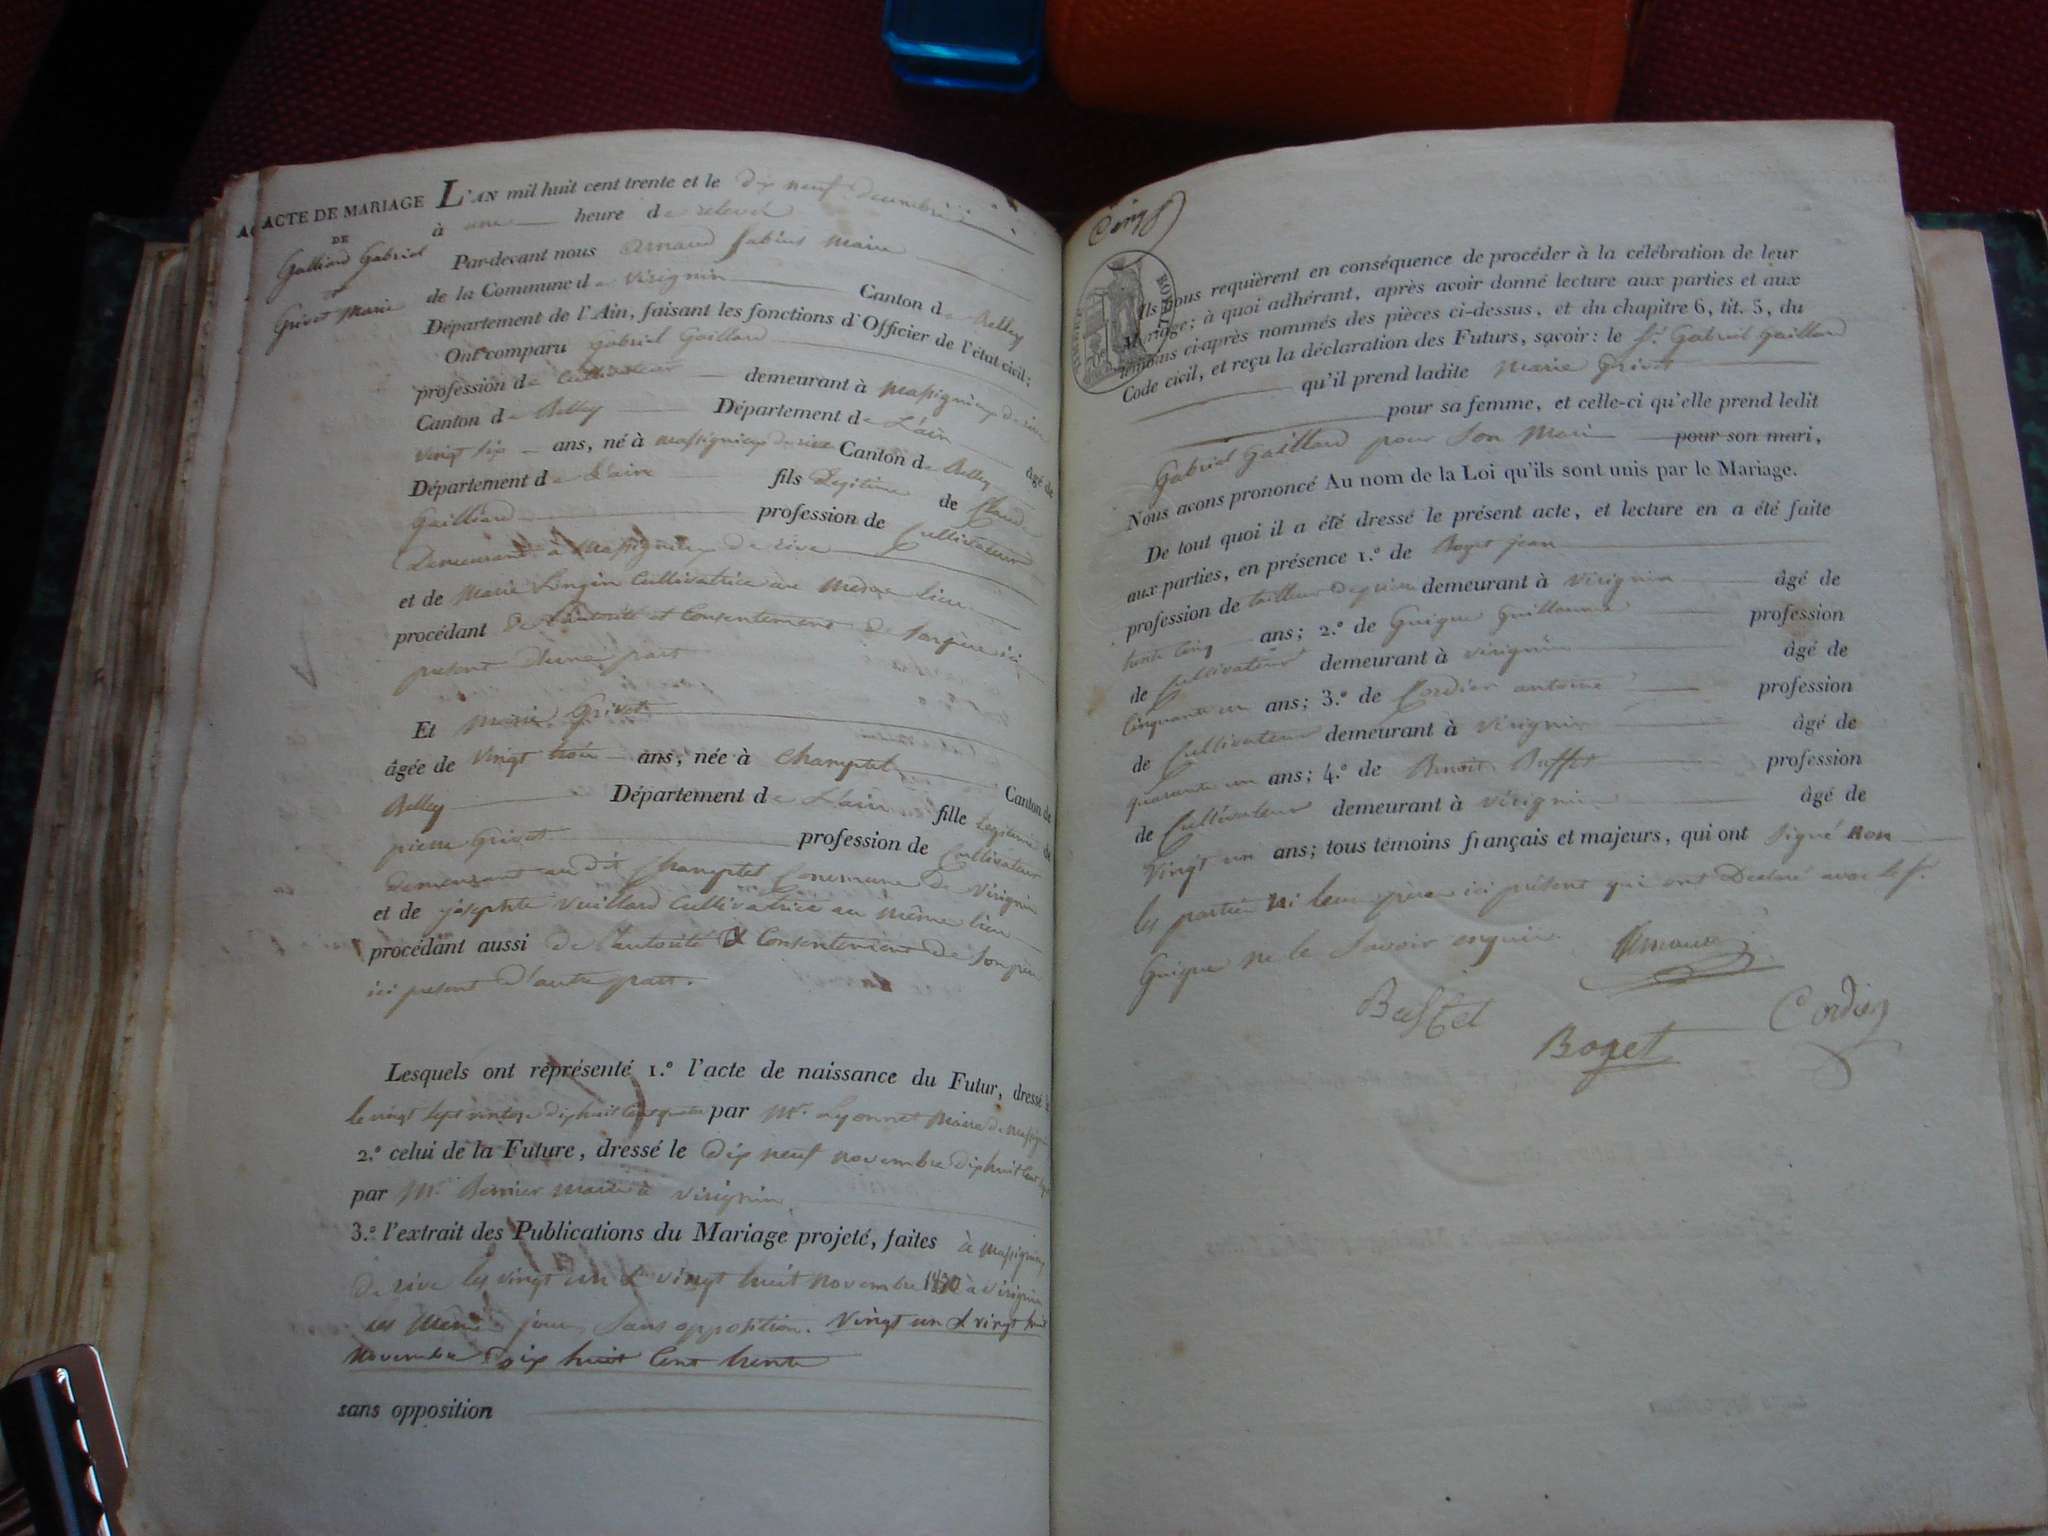 ACTE DE MARIAGE
DE
Galliard Gabriel
et
Grivet Marie
L'AN mil huit cent trente et le dix neuf decembre
à une heure de relevée
Par-devant nous Arnaud fabius Maire
de la Commune de Virignin Canton de Belley
Département de l'Ain, faisant les fonctions d'Officier de l'état civil;
Ont comparu Gabriel Gaillard
profession de Cultivateur demeurant à Massignieux de rive
Canton de Belley Département de L'ain âgé de
vingt six ans, né à Massignieux de rive Canton de Belley
Département de L'ain fils Legitime de Claude
Gailliard profession de Cultivateur
Demeurant à Massignieux de rive
et de Marie Longin Cultivatrice au meme lieu
procédant de L'autorité et Consentement de Son père ici
présent d'une part
Et Marie Grivet
âgée de vingt trois ans, née à Champtel Canton de
Belley Département de L'ain fille Legitime de
pierre Grivet profession de Cultivateur
demeurant au dit Champtel Commune de Virignin
et de josephte Vuillard Cultivatrice au même lieu
procédant aussi de l'autorité & Consentement de Son père
ici present d'autre part.
Lesquels ont représenté 1.º l'acte de naissance du Futur, dressé
le vingt sept ventose dix huit Cent quatre par Mr. Lyonnet Maire de Massignieux
2.º celui de la Future, dressé le dix neuf novembre dix huit Cent sept
par Mr. Bernier maire à Virignin
3.º l'extrait des Publications du Mariage projeté, faites à Massignieux
de rive les vingt un & vingt huit novembre 1830 à Virignin
les même jour, Sans opposition. Vingt un & vingt huit
novembre dix huit Cent trente
sans opposition
Cinq
ROYAL
Ils nous requièrent en conséquence de procéder à la célébration de leur
Mariage; à quoi adhérant, après avoir donné lecture aux parties et aux
témoins ci-après nommés des pièces ci-dessus, et du chapitre 6, tit. 5, du
Code civil, et reçu la déclaration des Futurs, savoir: le Sr. Gabriel Gaillard
qu'il prend ladite Marie Grivet
pour sa femme, et celle-ci qu'elle prend ledit
Gabriel Gaillard pour Son Mari pour son mari,
Nous avons prononcé Au nom de la Loi qu'ils sont unis par le Mariage.
De tout quoi il a été dressé le présent acte, et lecture en a été faite
aux parties, en présence 1.º de Boget jean
profession de tailleur de pierre demeurant à Virignin âgé de
trente Cinq ans; 2.º de Guigue Guillaume profession
de Cultivateur demeurant à Virignin âgé de
Cinquante un ans; 3.º de Cordier antoine profession
de Cultivateur demeurant à Virignin âgé de
quarante un ans; 4.º de Benoit Buffet profession
de Cultivateur demeurant à Virignin âgé de
Vingt un ans; tous témoins français et majeurs, qui ont Signé non
les parties ni leur père ici présent qui ont Declaré avec le Sr.
Guigue ne le Savoir enquis.
Arnaud
Buffet
Boget
Cordier